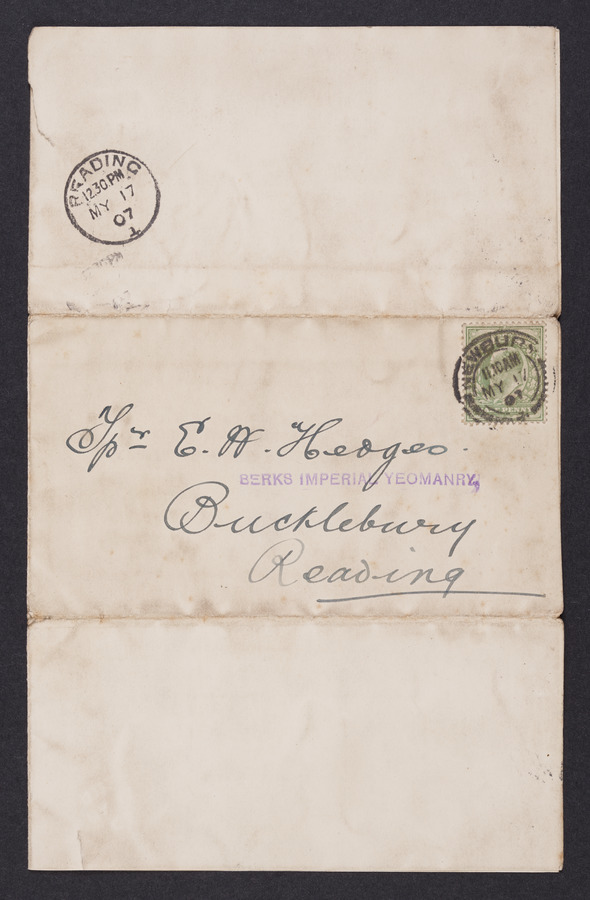 READING
12.30 PM
MY 17
07
T
NEWBURY
11.10 AM
MY 17
07
PENNY
Tpr E. W. Hedges.
BERKS IMPERIAL YEOMANRY,
Bucklebury
Reading